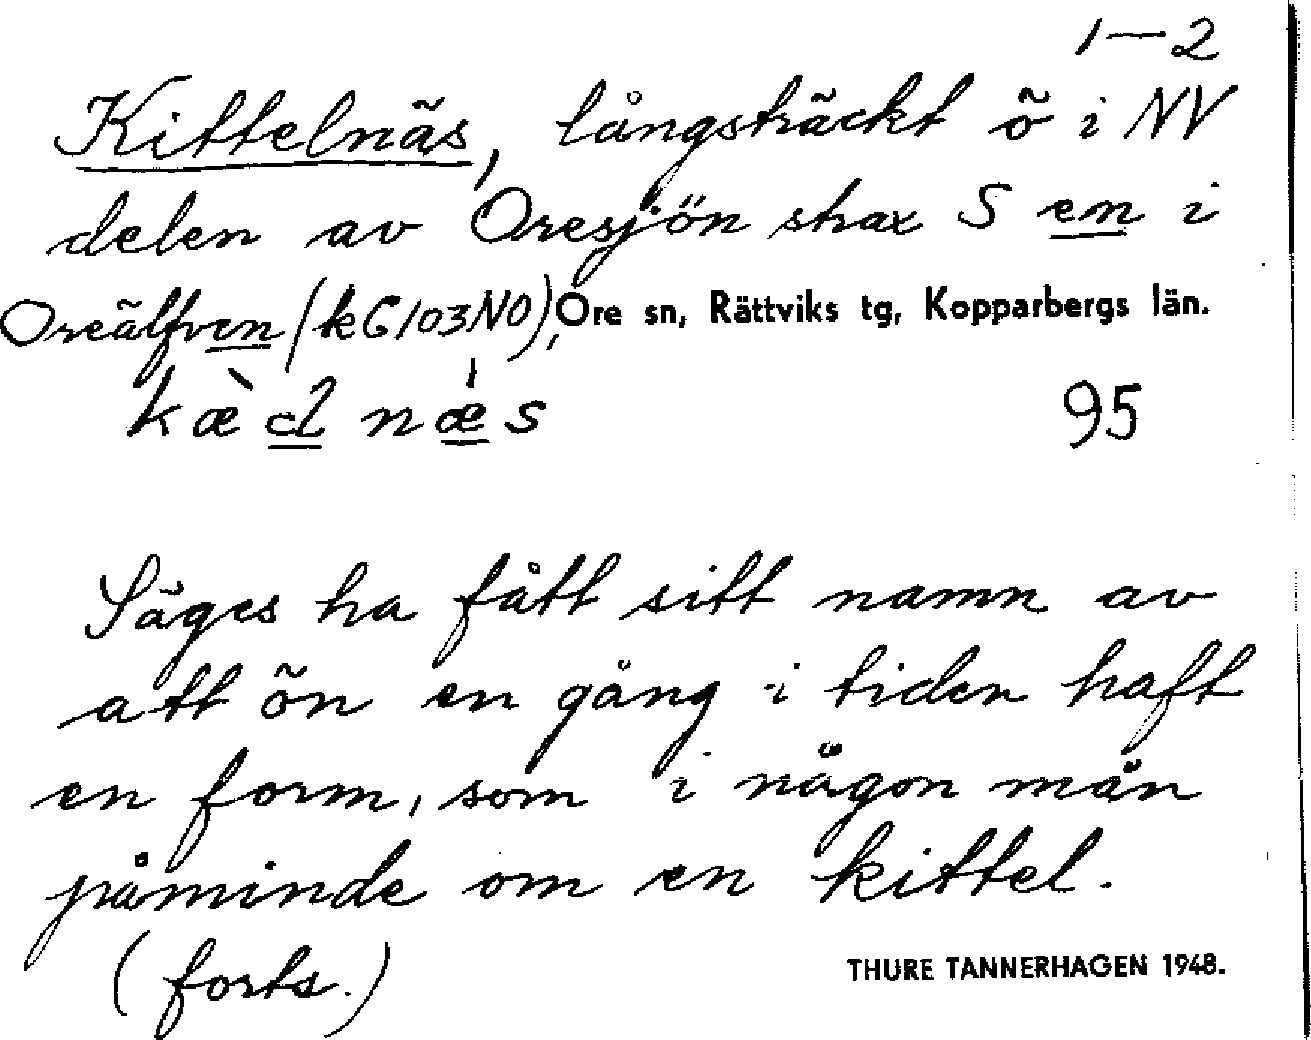 1—2
Kittelnäs, långsträckt ö i NV
delen av Oresjön strax S en i
Oreälfven (kG103NO), Ore sn, Rättviks tg, Kopparbergs län.
kæ̀dl næ̍s 95
Säges ha fått sitt namn av
att ön en gång i tiden haft
en form, som i någon mån
påminde om en kittel.
(forts.)
THURE TANNERHAGEN 1948.